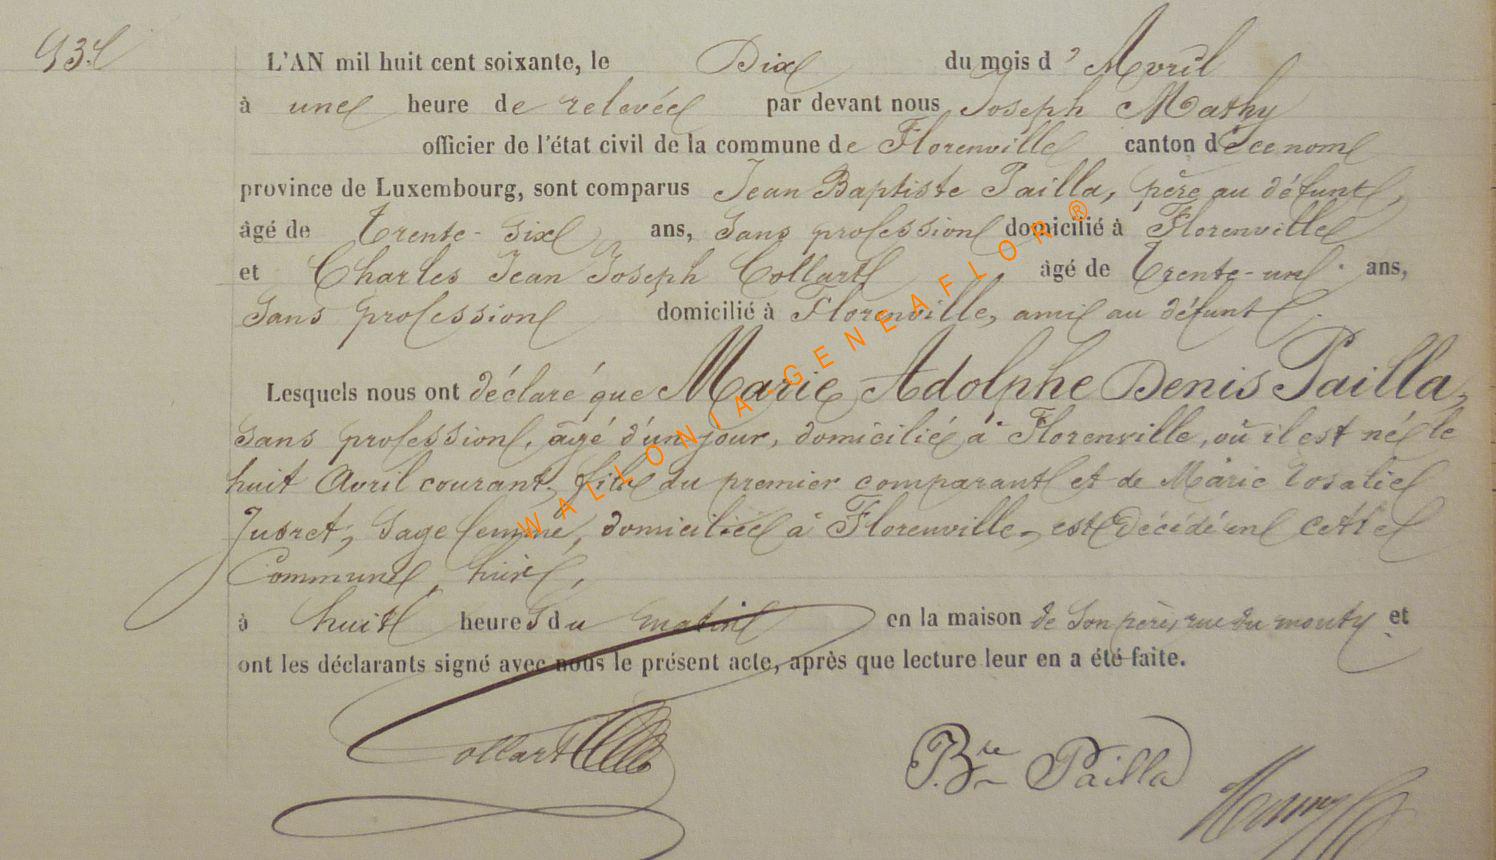 L'AN mil huit cent soixante, le Dix du mois d'Avril
à une heure de relevée par devant nous Joseph Mathy
officier de l'état civil de la commune de Florenville canton de ce nom
province de Luxembourg, sont comparus Jean Baptiste Pailla, père au défunt,
âgé de Trente-six ans, sans profession domicilié à Florenville
et Charles Jean Joseph Collart, âgé de Trente-un ans,
Sans profession domicilié à Florenville, ami au défunt.
Lesquels nous ont déclaré que Marie Adolphe Denis Pailla,
sans profession, âgé d'un jour, domicilié à Florenville, où il est né le
huit Avril courant, fils du premier comparant et de Marie Rosalie
Jusret, Sage femme, domiciliée à Florenville, est décédé en cette
Commune, hier,
à huit heures du matin en la maison de son père, rue du monty et
ont les déclarants signé avec nous le présent acte, après que lecture leur en a été faite.
Collart
J. Bte Pailla
WALLONIA-GENEAFLOR ®